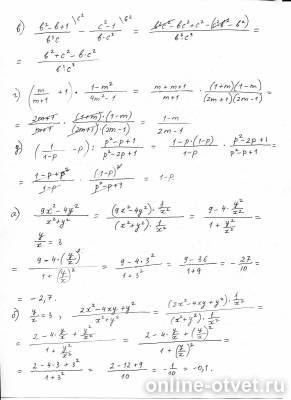 в) (b²-b+1)/(b³c) \c² - (c²-1)/(b·c²) \b² = (b²c-bc+c²-c²b²-b²)/(b³c²) =
= (b²+c²-b·c²)/(b³c²)
г) (m/(m+1) + 1) · (1-m²)/(4m²-1) = (m+m+1)/(m+1) · ((1+m)(1-m))/((2m+1)(2m-1)) =
= (2m+1)/(m+1) · ((1+m)(1-m))/((2m+1)(2m-1)) = (1-m)/(2m-1)
д) (1/(1-p) - p) : (p²-p+1)/(p²-2p+1) = (1-p·(1-p))/(1-p) · (p²-2p+1)/(p²-p+1) =
= (1-p+p²)/(1-p) · (1-p)²/(p²-p+1) = 1-p.
а) (9x²-4y²)/(x²+y²) = ((9x²-4y²)·1/x²)/((x²+y²)·1/x²) = (9-4·y²/x²)/(1+y²/x²) =
y/x = 3
= (9-4·(y/x)²)/(1+(y/x)²) = (9-4·3²)/(1+3²) = (9-36)/(1+9) = -27/10 =
= -2,7.
б) y/x = 3, (2x²-4xy+y²)/(x²+y²) = ((2x²-4xy+y²)·1/x²)/((x²+y²)·1/x²) =
= (2-4·y/x+y²/x²)/(1+y²/x²) = (2-4·y/x+(y/x)²)/(1+(y/x)²) =
= (2-4·3+3²)/(1+3²) = (2-12+9)/10 = -1/10 = -0,1.
online-otvet.ru